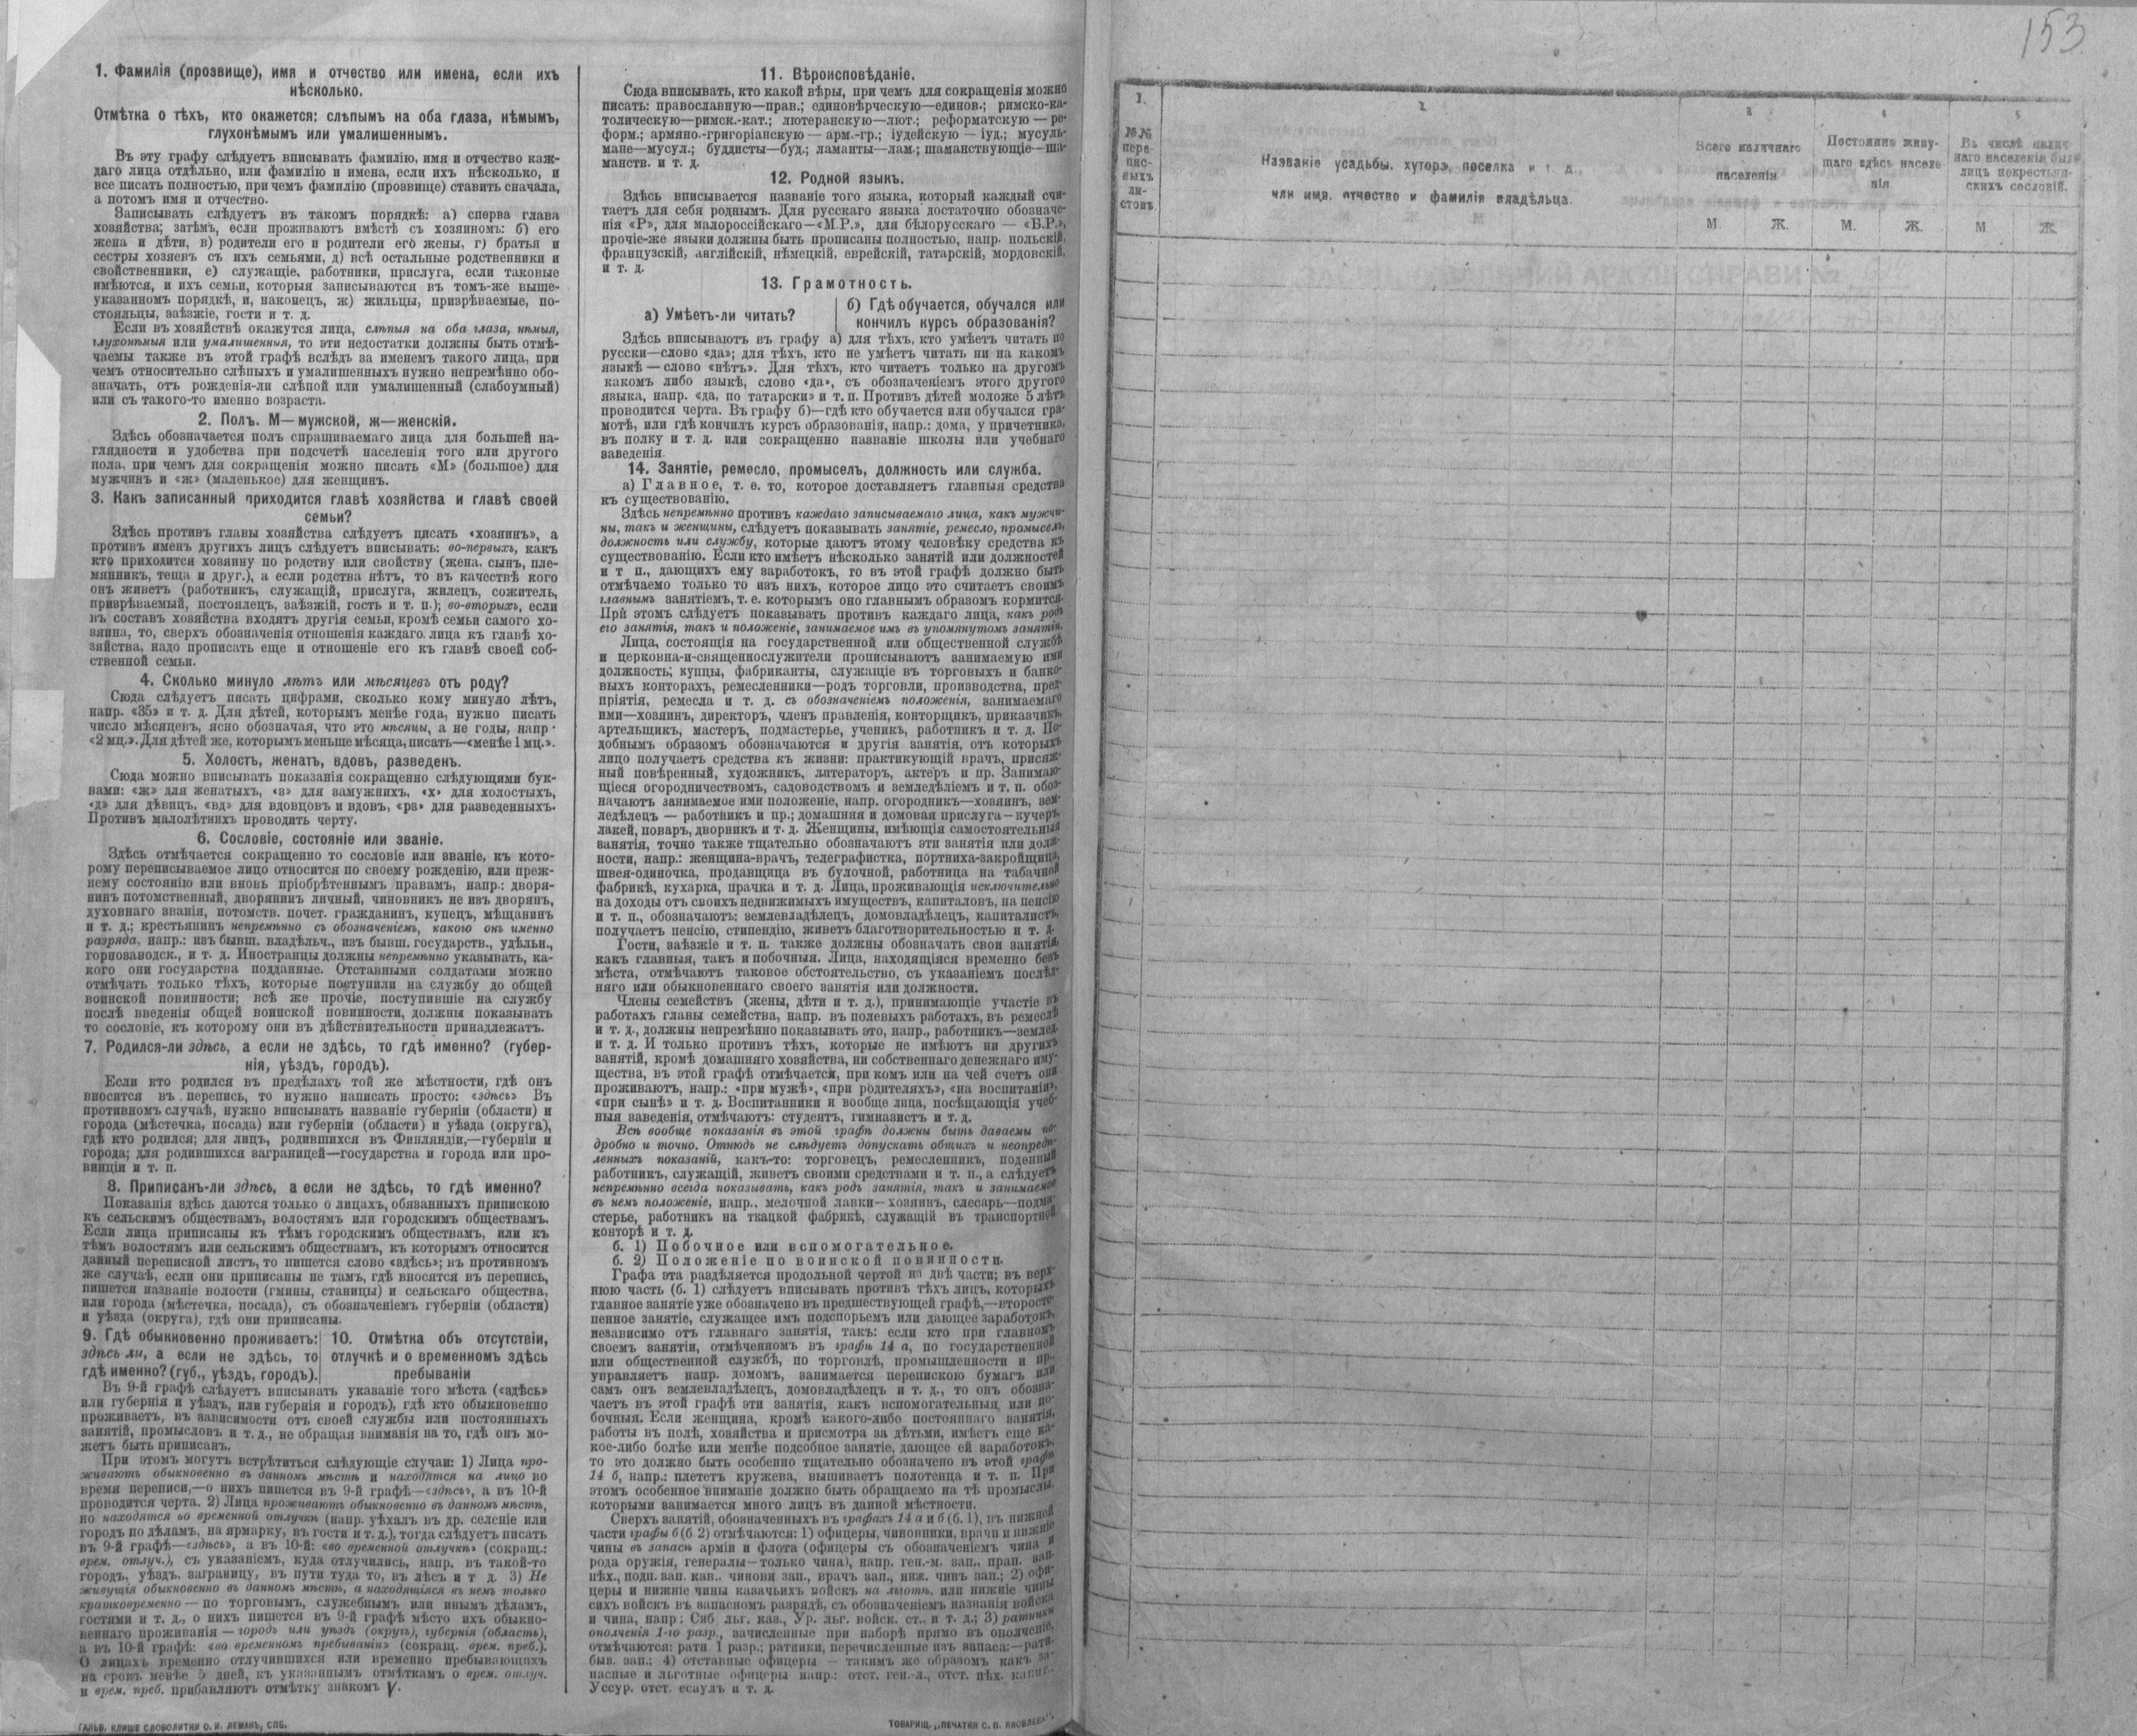 1. Фамилія (прозвище), имя и отчество или имена, если ихъ
нѣсколько.
Отмѣтка о тѣхъ, кто окажется: слѣпымъ на оба глаза, нѣмымъ,
глухонѣмымъ или умалишеннымъ.
Въ эту графу слѣдуетъ вписывать фамилію, имя и отчество каж-
даго лица отдѣльно, или фамилію и имена, если ихъ нѣсколько, и
все писать полностью, при чемъ фамилію (прозвище) ставить сначала,
а потомъ имя и отчество.
Записывать слѣдуетъ въ такомъ порядкѣ: а) сперва глава
хозяйства; затѣмъ, если проживаютъ вмѣстѣ съ хозяиномъ: б) его
жена и дѣти, в) родители его и родители его жены, г) братья и
сестры хозяевъ съ ихъ семьями, д) всѣ остальные родственники и
свойственники, е) служащіе, работники, прислуга, если таковые
имѣются, и ихъ семьи, которыя записываются въ томъ-же выше-
указанномъ порядкѣ, и, наконецъ, ж) жильцы, призрѣваемые, по-
стояльцы, заѣзжіе, гости и т. д.
Если въ хозяйствѣ окажутся лица, слѣпыя на оба глаза, нѣмыя,
глухонѣмыя или умалишенныя, то эти недостатки должны быть отмѣ-
чаемы также въ этой графѣ вслѣдъ за именемъ такого лица, при
чемъ относительно слѣпыхъ и умалишенныхъ нужно непремѣнно обо-
значать, отъ рожденія-ли слѣпой или умалишенный (слабоумный)
или съ такого-то именно возраста.
2. Полъ. М—мужской, ж—женскій.
Здѣсь обозначается полъ спрашиваемаго лица для большей на-
глядности и удобства при подсчетѣ населенія того или другого
пола, при чемъ для сокращенія можно писать «М» (большое) для
мужчинъ и «ж» (маленькое) для женщинъ.
3. Какъ записанный приходится главѣ хозяйства и главѣ своей
семьи?
Здѣсь противъ главы хозяйства слѣдуетъ писать «хозяинъ», а
противъ именъ другихъ лицъ слѣдуетъ вписывать: во-первыхъ, какъ
кто приходится хозяину по родству или свойству (жена, сынъ, пле-
мянникъ, теща и друг.), а если родства нѣтъ, то въ качествѣ кого
онъ живетъ (работникъ, служащій, прислуга, жилецъ, сожитель,
призрѣваемый, постоялецъ, заѣзжій, гость и т. п.); во-вторыхъ, если
въ составъ хозяйства входятъ другія семьи, кромѣ семьи самого хо-
зяина, то, сверхъ обозначенія отношенія каждаго лица къ главѣ хо-
зяйства, надо прописать еще и отношеніе его къ главѣ своей соб-
ственной семьи.
4. Сколько минуло лѣтъ или мѣсяцевъ отъ роду?
Сюда слѣдуетъ писать цифрами, сколько кому минуло лѣтъ,
напр. «35» и т. д. Для дѣтей, которымъ менѣе года, нужно писать
число мѣсяцевъ, ясно обозначая, что это мѣсяцы, а не годы, напр.
«2 мц.». Для дѣтей же, которымъ меньше мѣсяца, писать—«менѣе 1 мц.».
5. Холостъ, женатъ, вдовъ, разведенъ.
Сюда можно вписывать показанія сокращенно слѣдующими бук-
вами: «ж» для женатыхъ, «з» для замужнихъ, «х» для холостыхъ,
«д» для дѣвицъ, «вд» для вдовцовъ и вдовъ, «рз» для разведенныхъ.
Противъ малолѣтнихъ проводить черту.
6. Сословіе, состояніе или званіе.
Здѣсь отмѣчается сокращенно то сословіе или званіе, къ кото-
рому переписываемое лицо относится по своему рожденію, или преж-
нему состоянію или вновь пріобрѣтеннымъ правамъ, напр.: дворя-
нинъ потомственный, дворянинъ личный, чиновникъ не изъ дворянъ,
духовнаго званія, потомств. почет. гражданинъ, купецъ, мѣщанинъ
и т. д.; крестьянинъ непремѣнно съ обозначеніемъ, какого онъ именно
разряда, напр.: изъ бывш. владѣльч., изъ бывш. государств., удѣльн.,
горнозаводск., и т. д. Иностранцы должны непремѣнно указывать, ка-
кого они государства подданные. Отставными солдатами можно
отмѣчать только тѣхъ, которые поступили на службу до общей
воинской повинности; всѣ же прочіе, поступившіе на службу
послѣ введенія общей воинской повинности, должны показывать
то сословіе, къ которому они въ дѣйствительности принадлежатъ.
7. Родился-ли здѣсь, а если не здѣсь, то гдѣ именно? (губер-
нія, уѣздъ, городъ).
Если кто родился въ предѣлахъ той же мѣстности, гдѣ онъ
вносится въ перепись, то нужно написать просто: «здѣсь» Въ
противномъ случаѣ, нужно вписывать названіе губерніи (области) и
города (мѣстечка, посада) или губерніи (области) и уѣзда (округа),
гдѣ кто родился; для лицъ, родившихся въ Финляндіи,—губерніи и
города; для родившихся заграницей—государства и города или про-
винціи и т. п.
8. Приписанъ-ли здѣсь, а если не здѣсь, то гдѣ именно?
Показанія здѣсь даются только о лицахъ, обязанныхъ припискою
къ сельскимъ обществамъ, волостямъ или городскимъ обществамъ.
Если лица приписаны къ тѣмъ городскимъ обществамъ, или къ
тѣмъ волостямъ или сельскимъ обществамъ, къ которымъ относится
данный переписной листъ, то пишется слово «здѣсь»; въ противномъ
же случаѣ, если они приписаны не тамъ, гдѣ вносятся въ перепись,
пишется названіе волости (гмины, станицы) и сельскаго общества,
или города (мѣстечка, посада), съ обозначеніемъ губерніи (области)
и уѣзда (округа), гдѣ они приписаны.
9. Гдѣ обыкновенно проживаетъ:
здѣсь ли, а если не здѣсь, то
гдѣ именно? (губ., уѣздъ, городъ).
10. Отмѣтка объ отсутствіи,
отлучкѣ и о временномъ здѣсь
пребываніи
Въ 9-й графѣ слѣдуетъ вписывать указаніе того мѣста («здѣсь»
или губернія и уѣздъ, или губернія и городъ), гдѣ кто обыкновенно
проживаетъ, въ зависимости отъ своей службы или постоянныхъ
занятій, промысловъ и т. д., не обращая вниманія на то, гдѣ онъ мо-
жетъ быть приписанъ.
При этомъ могутъ встрѣтиться слѣдующіе случаи: 1) Лица про-
живаютъ обыкновенно въ данномъ мѣстѣ и находятся на лицо во
время переписи,—о нихъ пишется въ 9-й графѣ—«здѣсь», а въ 10-й
проводится черта. 2) Лица проживаютъ обыкновенно въ данномъ мѣстѣ,
но находятся во временной отлучкѣ (напр. уѣхалъ въ др. селеніе или
городъ по дѣламъ, на ярмарку, въ гости и т. д.), тогда слѣдуетъ писать
въ 9-й графѣ—«здѣсь», а въ 10-й: «во временной отлучкѣ» (сокращ.:
врем. отлуч.), съ указаніемъ, куда отлучились, напр. въ такой-то
городъ, уѣздъ, заграницу, въ пути туда то, въ лѣсъ и т д. 3) Не
живущія обыкновенно въ данномъ мѣстѣ, а находящіяся въ немъ только
кратковременно — по торговымъ, служебнымъ или инымъ дѣламъ,
гостями и т. д., о нихъ пишется въ 9-й графѣ мѣсто ихъ обыкно-
веннаго проживанія — городъ или уѣздъ (округъ), губернія (область),
а въ 10-й графѣ: «во временномъ пребываніи» (сокращ. врем. преб.).
О лицахъ временно отлучившихся или временно пребывающихъ
на срокъ менѣе 5 дней, къ указаннымъ отмѣткамъ о врем. отлуч.
и врем. преб. прибавляютъ отмѣтку знакомъ V.
ГАЛЬВ. КЛИШЕ СЛОВОЛИТНИ О. И. ЛЕМАНЪ, СПБ.
11. Вѣроисповѣданіе.
Сюда вписывать, кто какой вѣры, при чемъ для сокращенія можно
писать: православную—прав.; единовѣрческую—единов.; римско-ка-
толическую—римск.-кат.; лютеранскую—лют.; реформатскую — ре-
форм.; армяно.-григоріанскую — арм.-гр.; іудейскую — іуд.; мусуль-
мане—мусул.; буддисты—буд.; ламаиты—лам.; шаманствующіе—ша-
манств. и т. д.
12. Родной языкъ.
Здѣсь вписывается названіе того языка, который каждый счи-
таетъ для себя роднымъ. Для русскаго языка достаточно обозначе-
нія «Р», для малороссійскаго—«М.Р.», для бѣлорусскаго — «Б.Р.»,
прочіе-же языки должны быть прописаны полностью, напр. польскій,
французскій, англійскій, нѣмецкій, еврейскій, татарскій, мордовскій,
и т. д.
13. Грамотность.
а) Умѣетъ-ли читать?
б) Гдѣ обучается, обучался или
кончилъ курсъ образованія?
Здѣсь вписываютъ въ графу а) для тѣхъ, кто умѣетъ читать по
русски—слово «да»; для тѣхъ, кто не умѣетъ читать ни на какомъ
языкѣ — слово «нѣтъ». Для тѣхъ, кто читаетъ только на другомъ
какомъ либо языкѣ, слово «да», съ обозначеніемъ этого другого
языка, напр. «да, по татарски» и т. п. Противъ дѣтей моложе 5 лѣтъ
проводится черта. Въ графу б)—гдѣ кто обучается или обучался гра-
мотѣ, или гдѣ кончилъ курсъ образованія, напр.: дома, у причетника,
въ полку и т. д. или сокращенно названіе школы или учебнаго
заведенія
14. Занятіе, ремесло, промыселъ, должность или служба.
а) Главное, т. е. то, которое доставляетъ главныя средства
къ существованію.
Здѣсь непремѣнно противъ каждаго записываемаго лица, какъ мужчи-
ны, такъ и женщины, слѣдуетъ показывать занятіе, ремесло, промыселъ,
должность или службу, которые даютъ этому человѣку средства къ
существованію. Если кто имѣетъ нѣсколько занятій или должностей
и т п., дающихъ ему заработокъ, то въ этой графѣ должно быть
отмѣчаемо только то изъ нихъ, которое лицо это считаетъ своимъ
главнымъ занятіемъ, т. е. которымъ оно главнымъ образомъ кормится.
При этомъ слѣдуетъ показывать противъ каждаго лица, какъ родъ
его занятія, такъ и положеніе, занимаемое имъ въ упомянутомъ занятіи.
Лица, состоящія на государственной или общественной службѣ
и церковна-и-священнослужители прописываютъ занимаемую ими
должность; купцы, фабриканты, служащіе въ торговыхъ и банко-
выхъ конторахъ, ремесленники—родъ торговли, производства, пред-
пріятія, ремесла и т. д. съ обозначеніемъ положенія, занимаемаго
ими—хозяинъ, директоръ, членъ правленія, конторщикъ, приказчикъ,
артельщикъ, мастеръ, подмастерье, ученикъ, работникъ и т. д. По-
добнымъ образомъ обозначаются и другія занятія, отъ которыхъ
лицо получаетъ средства къ жизни: практикующій врачъ, присяж-
ный повѣренный, художникъ, литераторъ, актеръ и пр. Занимаю-
щіеся огородничествомъ, садоводствомъ и земледѣліемъ и т. п. обоз-
начаютъ занимаемое ими положеніе, напр. огородникъ—хозяинъ, зем-
ледѣлецъ — работникъ и пр.; домашняя и домовая прислуга—кучеръ,
лакей, поваръ, дворникъ и т. д. Женщины, имѣющія самостоятельныя
занятія, точно также тщательно обозначаютъ эти занятія или долж-
ности, напр.: женщина-врачъ, телеграфистка, портниха-закройщица,
швея-одиночка, продавщица въ булочной, работница на табачной
фабрикѣ, кухарка, прачка и т. д. Лица, проживающія исключительно
на доходы отъ своихъ недвижимыхъ имуществъ, капиталовъ, на пенсію
и т. п., обозначаютъ: землевладѣлецъ, домовладѣлецъ, капиталистъ,
получаетъ пенсію, стипендію, живетъ благотворительностью и т. д.
Гости, заѣзжіе и т. п. также должны обозначать свои занятія,
какъ главныя, такъ и побочныя. Лица, находящіяся временно безъ
мѣста, отмѣчаютъ таковое обстоятельство, съ указаніемъ послѣд-
няго или обыкновеннаго своего занятія или должности.
Члены семействъ (жены, дѣти и т. д.), принимающіе участіе въ
работахъ главы семейства, напр. въ полевыхъ работахъ, въ ремеслѣ
и т. д., должны непремѣнно показывать это, напр., работникъ—землед.
и т. д. И только противъ тѣхъ, которые не имѣютъ ни другихъ
занятій, кромѣ домашняго хозяйства, ни собственнаго денежнаго иму-
щества, въ этой графѣ отмѣчается, при комъ или на чей счетъ они
проживаютъ, напр.: «при мужѣ», «при родителяхъ», «на воспитаніи»,
«при сынѣ» и т. д. Воспитанники и вообще лица, посѣщающія учеб-
ныя заведенія, отмѣчаютъ: студентъ, гимназистъ и т. д.
Всѣ вообще показанія въ этой графѣ должны быть даваемы по-
дробно и точно. Отнюдь не слѣдуетъ допускать общихъ и неопредѣ-
ленныхъ показаній, какъ-то: торговецъ, ремесленникъ, поденный
работникъ, служащій, живетъ своими средствами и т. п., а слѣдуетъ
непремѣнно всегда показывать, какъ родъ занятія, такъ и занимаемое
въ немъ положеніе, напр., мелочной лавки—хозяинъ, слесарь—подма-
стерье, работникъ на ткацкой фабрикѣ, служащій въ транспортной
конторѣ и т. д.
б. 1) Побочное или вспомогательное.
б. 2) Положеніе по воинской повинности.
Графа эта раздѣляется продольной чертой на двѣ части; въ верх-
нюю часть (б. 1) слѣдуетъ вписывать противъ тѣхъ лицъ, которыхъ
главное занятіе уже обозначено въ предшествующей графѣ,—второсте-
пенное занятіе, служащее имъ подспорьемъ или дающее заработокъ,
независимо отъ главнаго занятія, такъ: если кто при главномъ
своемъ занятіи, отмѣченномъ въ графѣ 14 а, по государственной
или общественной службѣ, по торговлѣ, промышленности и пр.,
управляетъ напр. домомъ, занимается перепискою бумагъ или
самъ онъ землевладѣлецъ, домовладѣлецъ и т. д., то онъ обозна-
чаетъ въ этой графѣ эти занятія, какъ вспомогательныя или по-
бочныя. Если женщина, кромѣ какого-либо постояннаго занятія,
работы въ полѣ, хозяйства и присмотра за дѣтьми, имѣетъ еще ка-
кое-либо болѣе или менѣе подсобное занятіе, дающее ей заработокъ,
то это должно быть особенно тщательно обозначено въ этой графѣ
14 б, напр.: плететъ кружева, вышиваетъ полотенца и т. п. При
этомъ особенное вниманіе должно быть обращаемо на тѣ промыслы,
которыми занимается много лицъ въ данной мѣстности.
Сверхъ занятій, обозначенныхъ въ графахъ 14 а и б (б. 1), въ нижней
части графы б (б 2) отмѣчаются: 1) офицеры, чиновники, врачи и нижніе
чины въ запасѣ арміи и флота (офицеры съ обозначеніемъ чина и
рода оружія, генералы—только чина), напр. ген.-м. зап., прап. зап.
пѣх., подп. зап. кав., чиновн зап., врачъ зап., ниж. чинъ зап.; 2) офи-
церы и нижніе чины казачьихъ войскъ на льготѣ, или нижніе чины
сихъ войскъ въ запасномъ разрядѣ, съ обозначеніемъ названія войска
и чина, напр: Сиб льг. каз., Ур. льг. войск. ст., и т. д.; 3) ратники
ополченія 1-го разр., зачисленные при наборѣ прямо въ ополченіе,
отмѣчаются: ратн 1 разр.; ратники, перечисленные изъ запаса:—ратн.
быв. зап.; 4) отставные офицеры — такимъ же образомъ какъ за-
пасные и льготные офицеры напр.: отст. ген.-л., отст. пѣх. капит.,
Уссур. отст. есаулъ и т. д.
ТОВАРИЩ. „ПЕЧАТНЯ С. П. ЯКОВЛЕВА".
153
1.
№№
пере-
пис-
ныхъ
ли-
стовъ
2
Названіе усадьбы, хутора, поселка и т. д.,
или имя, отчество и фамилія владѣльца.
3
Всего наличнаго
населенія
М.
Ж.
4
Постоянно живу-
щаго здѣсь населе-
нія
М.
Ж.
Въ числѣ налич-
наго населенія было
лицъ некрестьян-
скихъ сословій.
М
Ж.